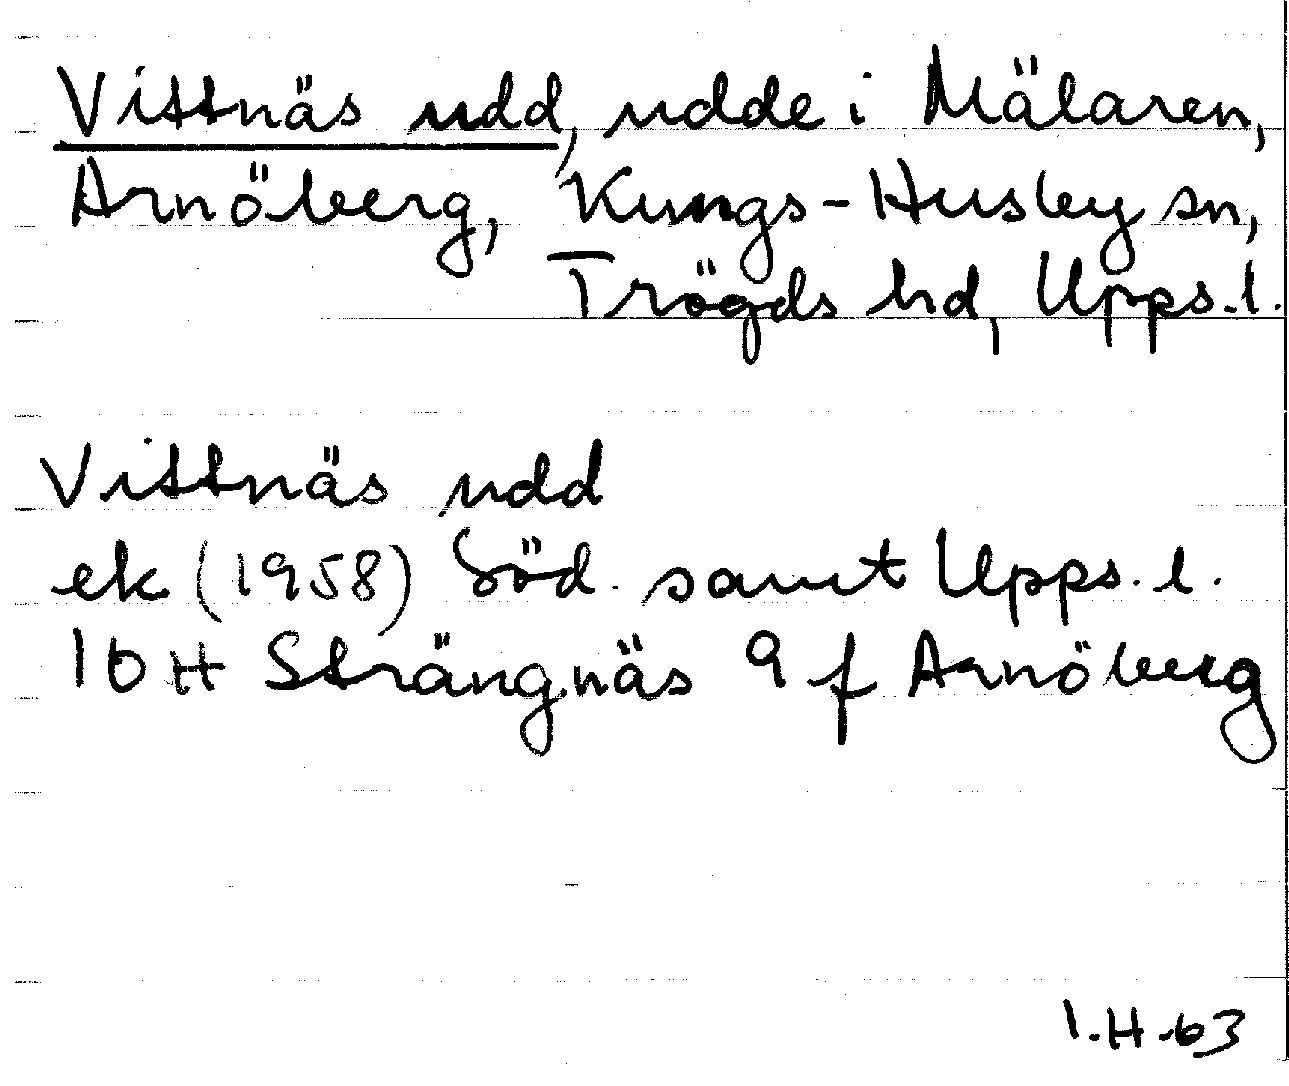 Vittnäs udd, udde i Mälaren,
Arnöberg, Kungs-Husby sn,
Trögds hd, Upps. l.
Vittnäs udd
ek (1958) Söd. samt Upps. l.
10 H Strängnäs 9 f Arnöberg
I.H.63